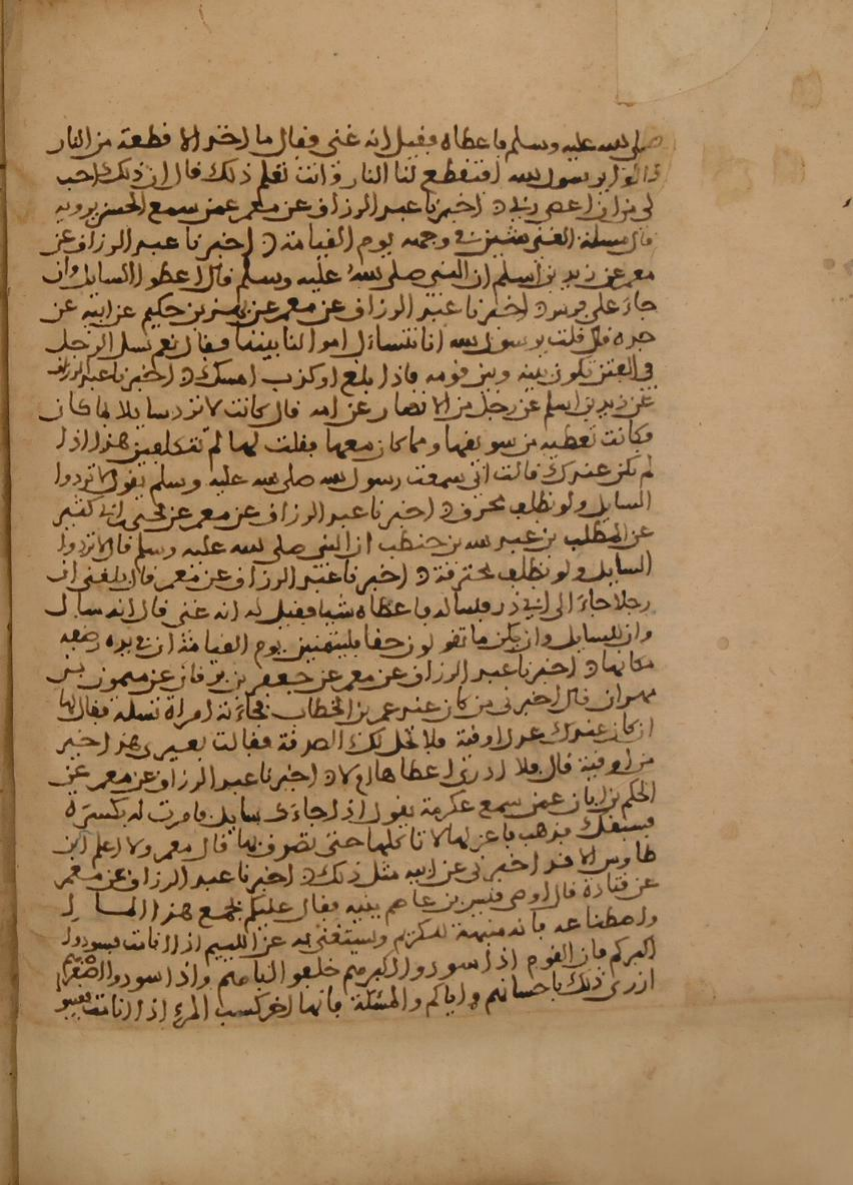 صلى الله عليه وسلم فاعطاه فقيل انه غنى فقال ما اخذ الا قطعة من النار
قالوا يرسول الله افتقطع لنا النار وانت تعلم ذلك قال ان ذلك احب
لى من ان اعصى ربى اخبرنا عبد الرزاق عن معمر عمن سمع الحسن يرويه
قال مسلة الغنى شين فى وجهه يوم القيامة اخبرنا عبد الرزاق عن
معمر عن زيد بن اسلم ان النبى صلى الله عليه وسلم قال اعطوا السايل وان
جاء على فرس اخبرنا عبد الرزاق عن معمر عن بهز بن حكيم عن ابيه عن
جده قال قلت يرسول الله انا نتسائل اموالنا بيننا فقال نعم يسل الرجل
فى الفتق يكون بينه وبين قومه فاذا بلغ او كرب امسك اخبرنا عبد الرزاق
عن زيد بن اسلم عن رجل من الانصار عن امه قال كانت لا ترد سايلا بما كان
فكانت تعطيه من سويقها ومما كان معها فقلت لها لم تتكلفين هذا اذا
لم يكن عندك قالت انى سمعت رسول الله صلى الله عليه وسلم يقول لا تردوا
السايل ولو بظلف محرق اخبرنا عبد الرزاق عن معمر عن يحيى بن ابى كثير
عن المطلب بن عبد الله بن حنطب ان النبى صلى الله عليه وسلم قال لا تردوا
السايل ولو بظلف محترقة اخبرنا عبد الرزاق عن معمر قال بلغنى ان
رجلا جاء الى ابى ذر فساله فاعطاه شيا فقيل له انه غنى قال انه سايل
وان للسايل وان يكن ما تقولون حقا فليتمنين يوم القيامة ان فى يده رضفة
مكانها اخبرنا عبد الرزاق عن معمر عن جعفر بن برقان عن ميمون بن
مهران قال اخبرنى من كان عند عمر بن الخطاب فجاءته امراة تسله فقال لها
ان كان عندك عدل اوقية فلا تحل لك الصدقة فقالت بعيرى هذا خير
من اوقية قال فلا ادرى اعطاها ام لا اخبرنا عبد الرزاق عن معمر عن
الحكم بن ابان عمن سمع عكرمة يقول اذا جاءك سايل فامرت له بكسرة
فسبقك فذهب فاعزلها لا تاكلها حتى تصدق بها قال معمر ولا اعلم ابن
طاوس الا قد اخبرنى عن ابيه مثل ذلك اخبرنا عبد الرزاق عن معمر
عن قتادة قال اوصى قيس بن عاصم بنيه فقال عليكم بجمع هذا المال
واصطناعه فانه منبهة للكريم ويستغنى به عن اللييم اذا انا مت فسودوا
اكبركم فان القوم اذا سودوا اكبرهم خلفوا اباهم واذا سودوا اصغرهم
ازرى ذلك باحسابهم واياكم والمسلة فانها اخر كسب المرء اذا انا مت فغيبوا